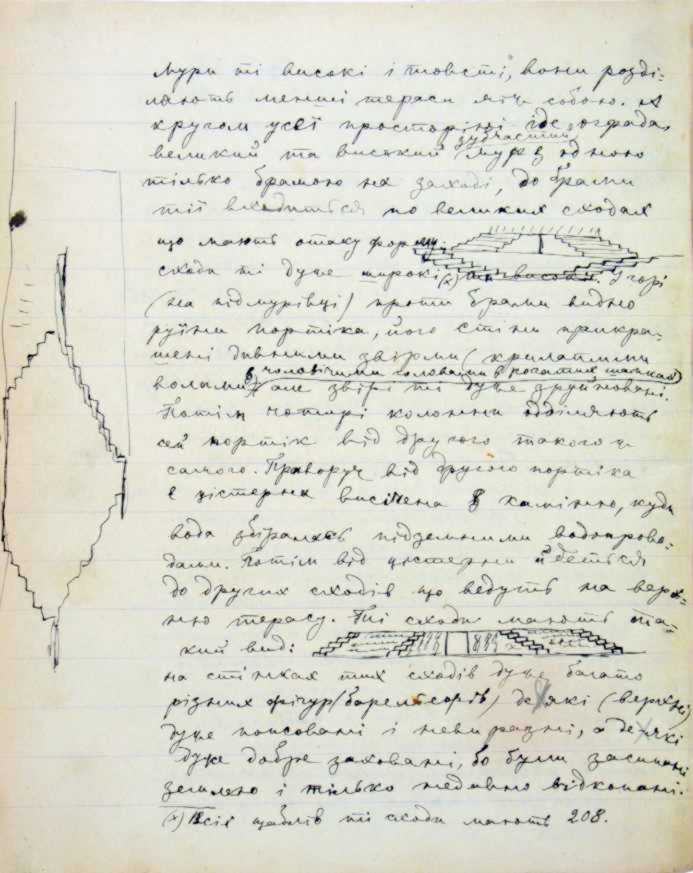 мури ті високі і товсті, вони розді-
ляють менші тераси між собою. А
кругом усеї просторіні іде огряда,
зубчастий
великий та високий мур з одною
тілько брамою на заході, до брами
тії входиться по великих сходах
що мають отаку форму.
сходи ті дуже широкі (x) та високі. Згорі
(на підмурівці) проти брами видно
руїни портіка, його стіни прикра-
шені дивними звірми (крилатими
з чоловічими головами в рогатих шапках)
волами, але звірі ті дуже зруйновані.
Потім чотирі колонни одділяють
сей портік від другого такого ж
самого. Праворуч від другого портіка
є цістерна висічена в камінню, куди
вода збіралась підземними водопрово-
дами. Потім від цістерни йдеться
до других сходів що ведуть на верх-
ню терасу. Ті сходи мають та-
кий вид:
на стінках тих сходів дуже багато
різних фігур (барельєфів), деякі (верхні)
дуже попсовані і невиразні, а деякі
дуже добре заховані, бо були засипані
землею і тілько недавно відкопані.
(x) Всіх щаблів ті сходи мають 208.